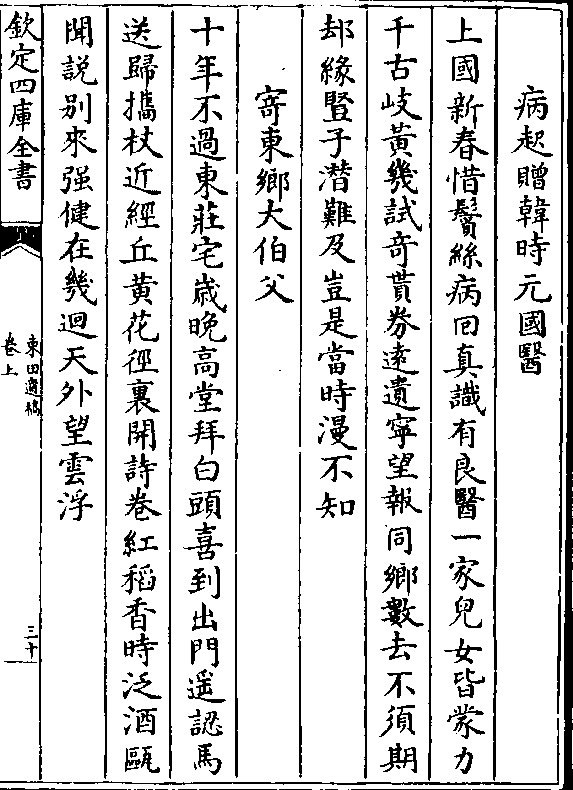 病起贈韓時元國醫
上國新春惜鬢絲病回真識有良醫一家兒女皆蒙力
千古岐黄幾試奇貰劵逺遺寧望報同鄉數去不須期
却緣豎子潛難及豈是當時漫不知
寄東鄉大伯父
十年不過東莊宅歲晚高堂拜白頭喜到出門遥認馬
送歸攜杖近經丘黄花徑裏開詩卷紅稻香時泛酒甌
聞說别來强健在幾迴天外望雲浮
欽定四庫全書
東田遺稿
卷上
三十